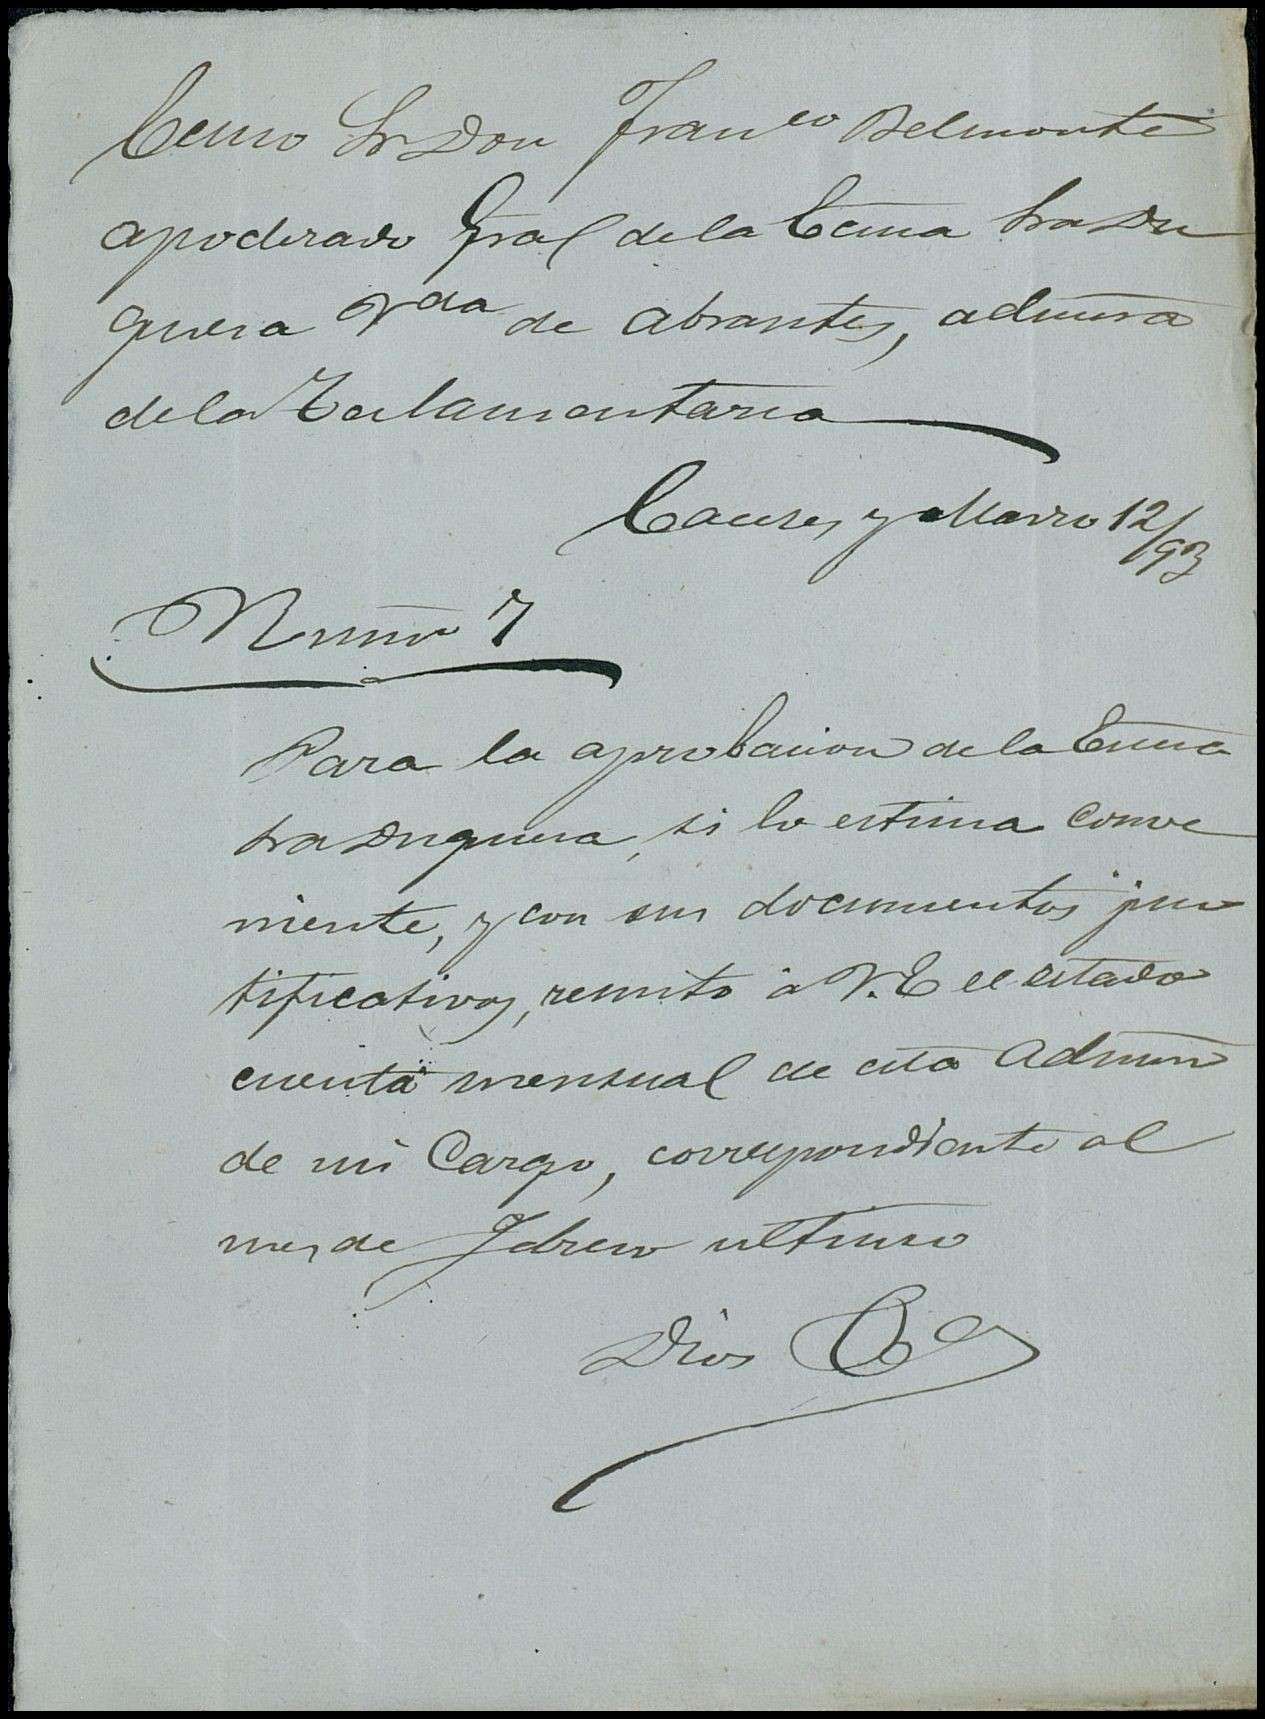 Excmo Sr Don Franco Belmonte
apoderado Gral de la Excma Sra Du
quesa Vda de Abrantes, admora
de la Testamentaria
Caceres y Marzo 12/93
Numo 7
Para la aprobacion de la Excma
Sra Duquesa, si lo estima conve
niente, y con sus documentos jus
tificativos, remito á V.E el estado
cuenta mensual de esta Admon
de mi Cargo, correspondiente al
mes de Febrero ultimo
Dios